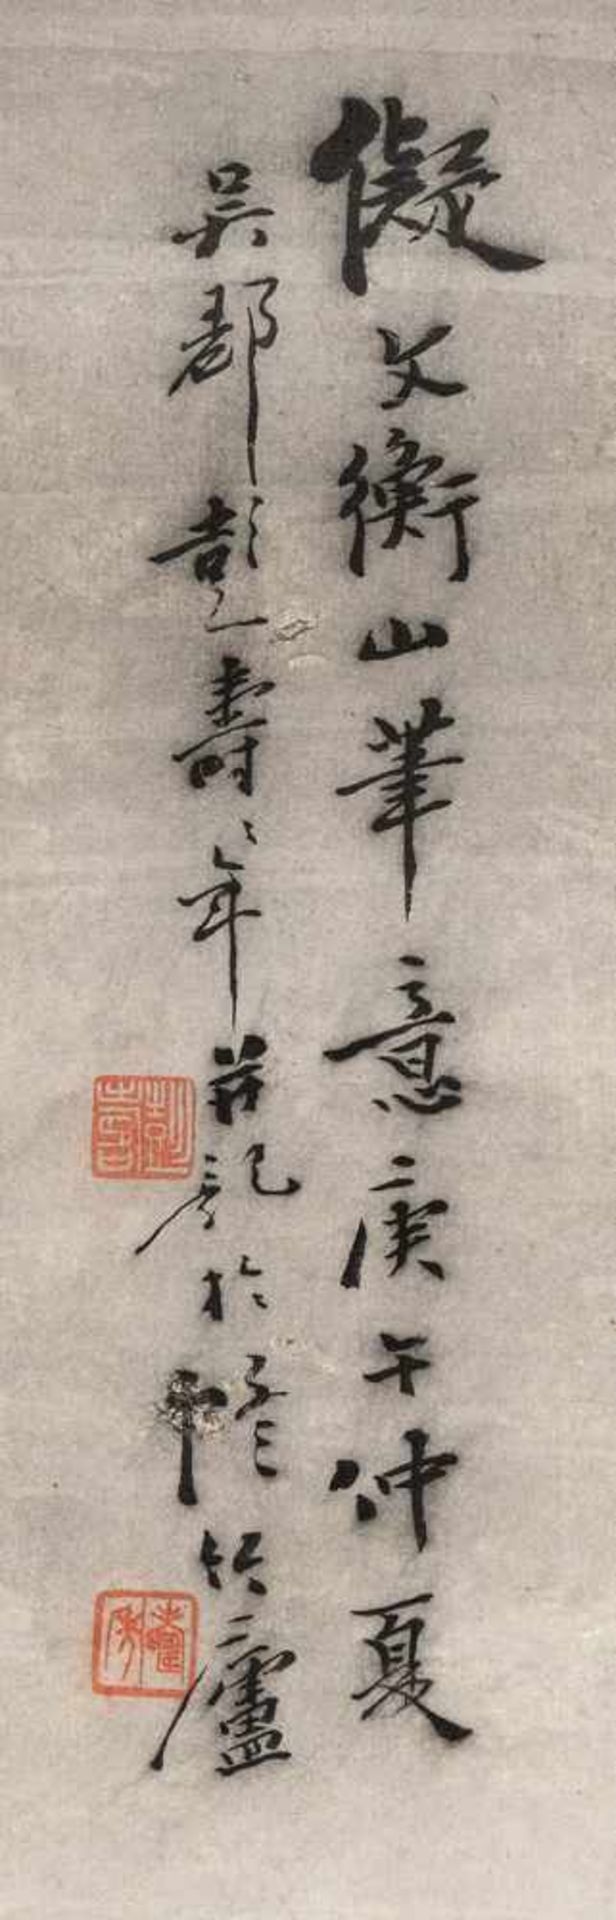 儗文衡山筆意庚午仲夏
吳郡彭壽年并記於竹廬